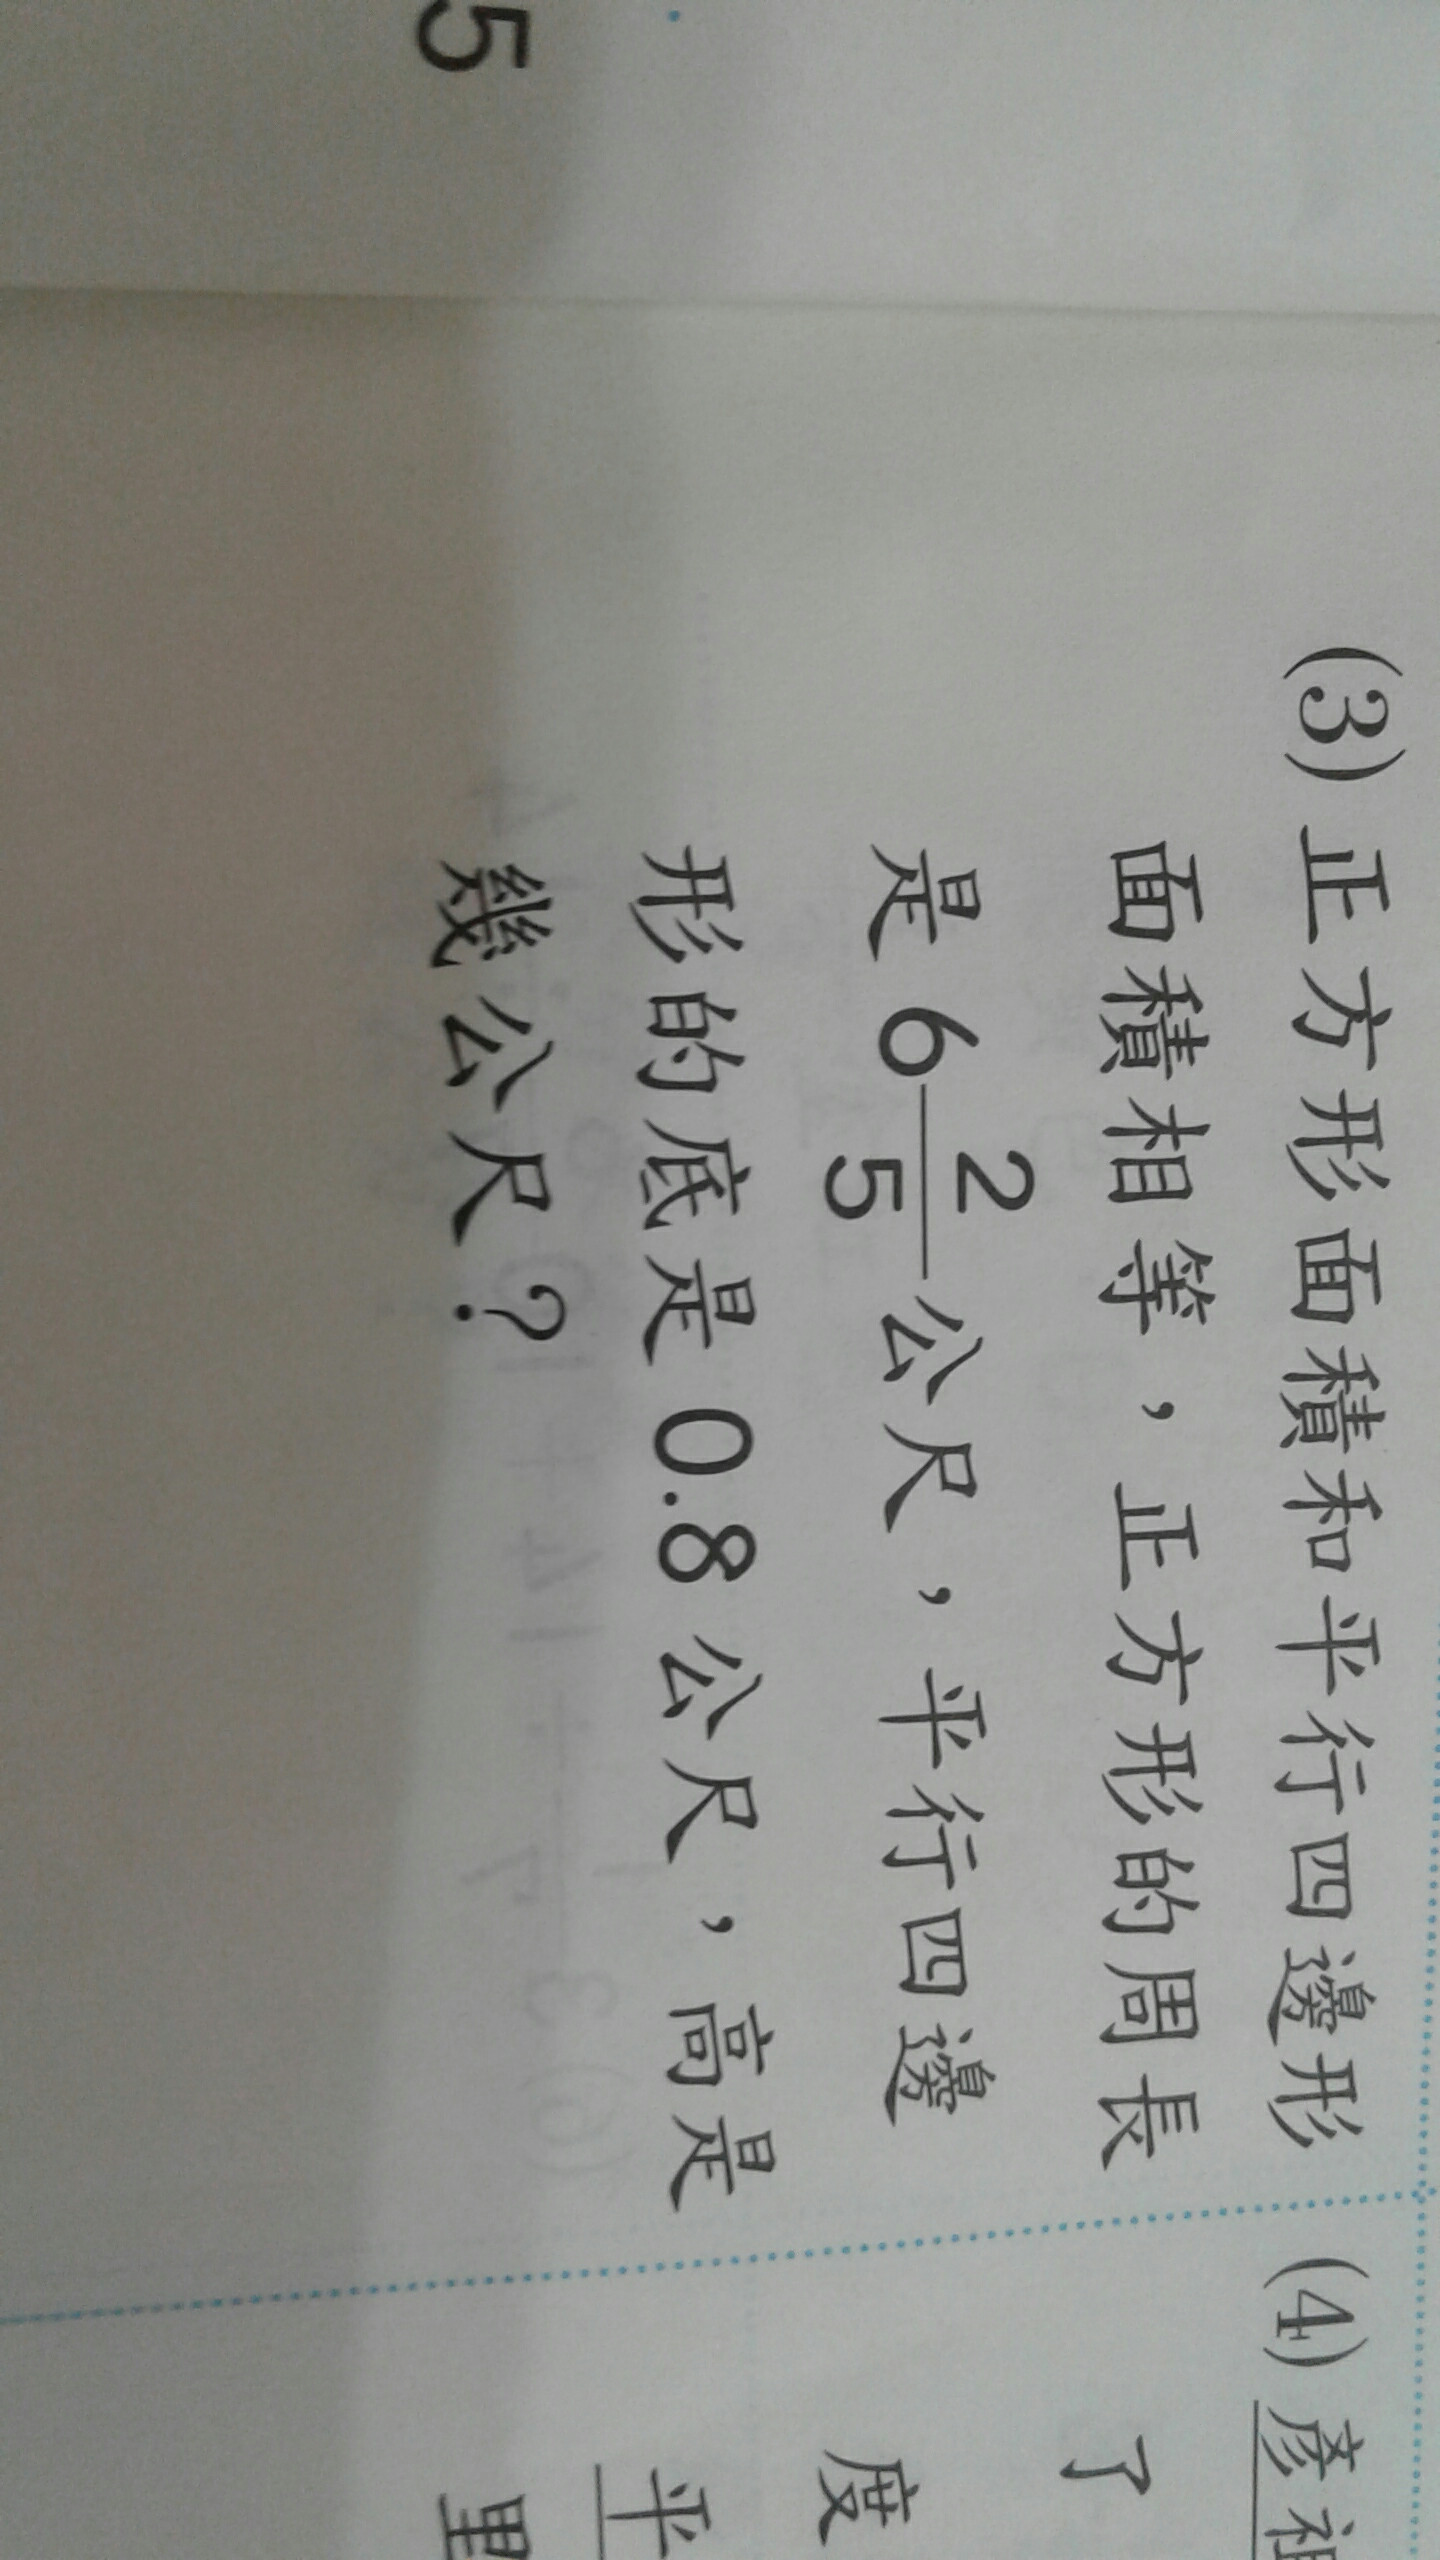 5
(3) 正方形面積和平行四邊形
面積相等，正方形的周長
是 6 2/5 公尺，平行四邊
形的底是 0.8 公尺，高是
幾公尺？
(4) 彥祖
了
度
平
里